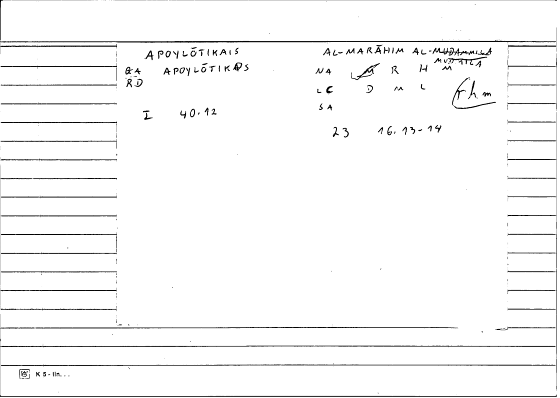 APOYLŌTIKAIS
GA APOYLŌTIKOS
RD
I 40.12
AL-MARĀHIM AL-MUDAMMILA
MUDMILA
NA M R H M
LC D M L
rhm
SA
23 16.13-14
K 5 - lin...